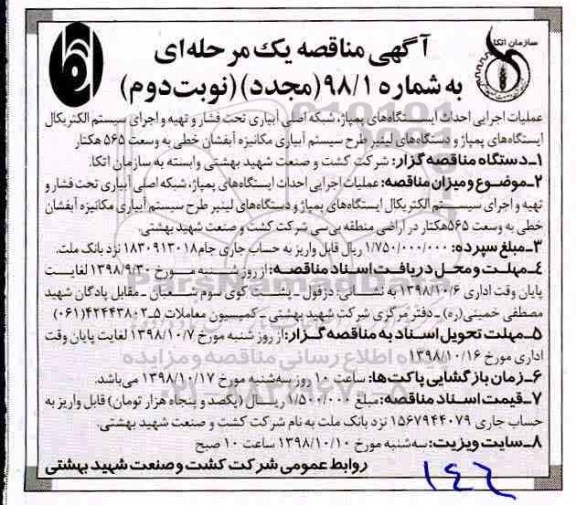 سازمان اتکا
آگهی مناقصه یک مرحله‌ای
به شماره ۹۸/۱ (مجدد) (نوبت دوم)
عملیات اجرایی احداث ایستگاه‌های پمپاژ، شبکه اصلی آبیاری تحت فشار و تهیه و اجرای سیستم الکتریکال
ایستگاه‌های پمپاژ و دستگاه‌های لینیر طرح سیستم آبیاری مکانیزه آبفشان خطی به وسعت ۵۶۵ هکتار
۱ـ دستگاه مناقصه گزار: شرکت کشت و صنعت شهید بهشتی وابسته به سازمان اتکا.
۲ـ موضوع و میزان مناقصه: عملیات اجرایی احداث ایستگاه‌های پمپاژ، شبکه اصلی آبیاری تحت فشار و
تهیه و اجرای سیستم الکتریکال ایستگاه‌های پمپاژ و دستگاه‌های لینیر طرح سیستم آبیاری مکانیزه آبفشان
خطی به وسعت ۵۶۵ هکتار در اراضی منطقه بی‌سی شرکت کشت و صنعت شهید بهشتی.
۳ـ مبلغ سپرده: ۱/۷۵۰/۰۰۰/۰۰۰ ریال قابل واریز به حساب جاری جام ۱۸۳۰۹۱۳۰۱۸ نزد بانک ملت.
۴ـ مهلت و محل دریافت اسناد مناقصه: از روز شنبه مورخ ۱۳۹۸/۹/۳۰ لغایت
پایان وقت اداری ۱۳۹۸/۱۰/۶ به نشانی: دزفول ـ پشت کوی سوم شعبان ـ مقابل پادگان شهید
مصطفی خمینی(ره) ـ دفتر مرکزی شرکت شهید بهشتی ـ کمیسیون معاملات ۵ـ۴۲۴۴۳۸۰۲(۰۶۱)
۵ـ مهلت تحویل اسناد به مناقصه گزار: از روز شنبه مورخ ۱۳۹۸/۱۰/۷ لغایت پایان وقت
اداری مورخ ۱۳۹۸/۱۰/۱۶
۶ـ زمان بازگشایی پاکت‌ها: ساعت ۱۰ روز سه‌شنبه مورخ ۱۳۹۸/۱۰/۱۷ می‌باشد.
۷ـ قیمت اسناد مناقصه: مبلغ ۱/۵۰۰/۰۰۰ ریال (یکصد و پنجاه هزار تومان) قابل واریز به
حساب جاری ۱۵۶۷۹۴۴۰۷۹ نزد بانک ملت به نام شرکت کشت و صنعت شهید بهشتی.
۸ـ سایت ویزیت: سه‌شنبه مورخ ۱۳۹۸/۱۰/۱۰ ساعت ۱۰ صبح
روابط عمومی شرکت کشت و صنعت شهید بهشتی
۱۴۶